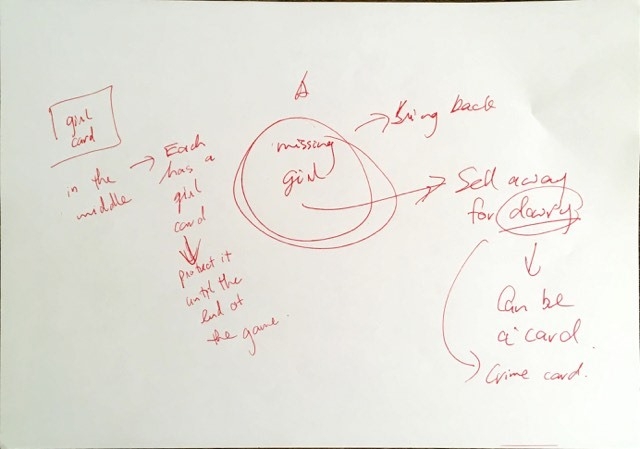 girl
card
in the
middle
Each
has a
girl
card
protect it
until the
end of
the game.
missing
girl
Bring back
Sell away
for dowry
Can be
a card.
Crime card.